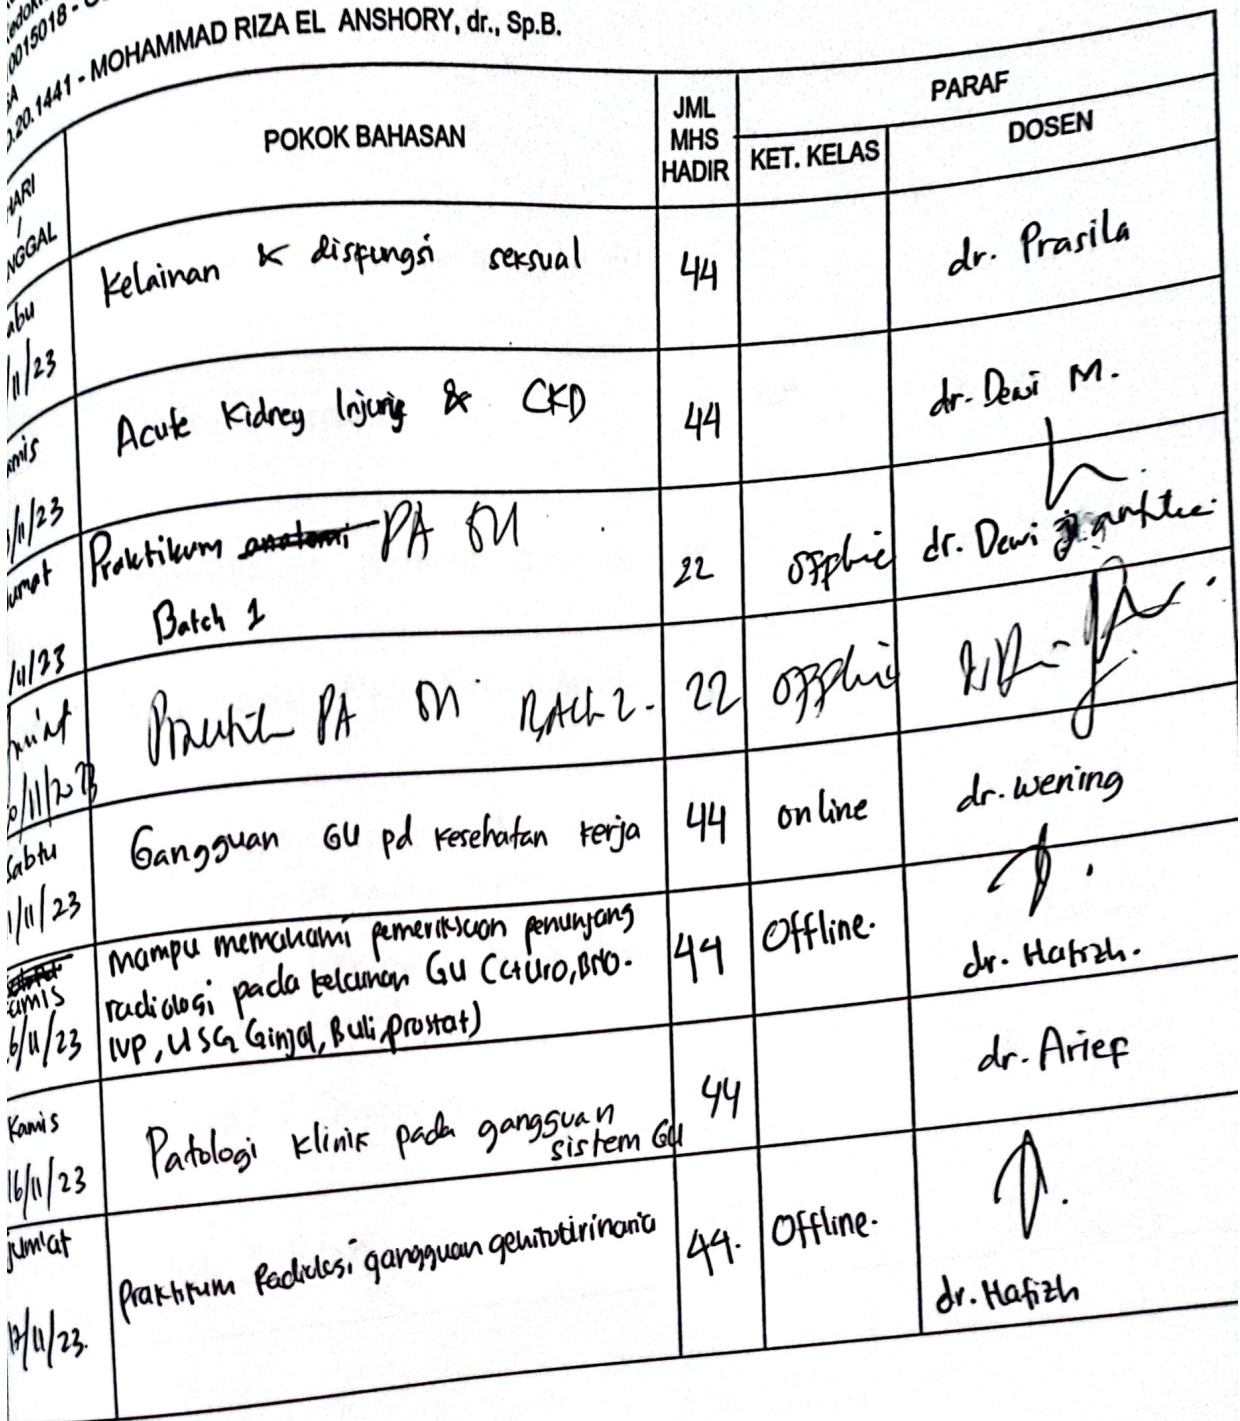 0015018 -
0.20.1441 - MOHAMMAD RIZA EL ANSHORY, dr., Sp.B.
HARI
/
NGGAL
POKOK BAHASAN
JML
MHS
HADIR
PARAF
KET. KELAS
DOSEN
abu
/11/23
Kelainan & disfungsi seksual
44
dr. Prasila
amis
/11/23
Acute Kidney Injury & CKD
44
dr. Dewi M.
umat
/11/23
Praktikum anatomi PA
Batch 1
22
offline
dr. Dewi
/11/2023
PA
Batch 2.
22
offline
Sabtu
1/11/23
Gangguan GU pd kesehatan kerja
44
online
dr. wening
amis
6/11/23
Mampu memahami pemeriksaan penunjang
radiologi pada kelainan GU (Ct Uro, BNO-
IVP, USG Ginjal, Buli, prostat)
44
Offline.
dr. Hafizh.
Kamis
16/11/23
Patologi klinik pada gangguan
sistem GU
44
dr. Arief
Jum'at
17/11/23.
Praktikum Radiologi gangguan genitutirinaria
44.
Offline.
dr. Hafizh